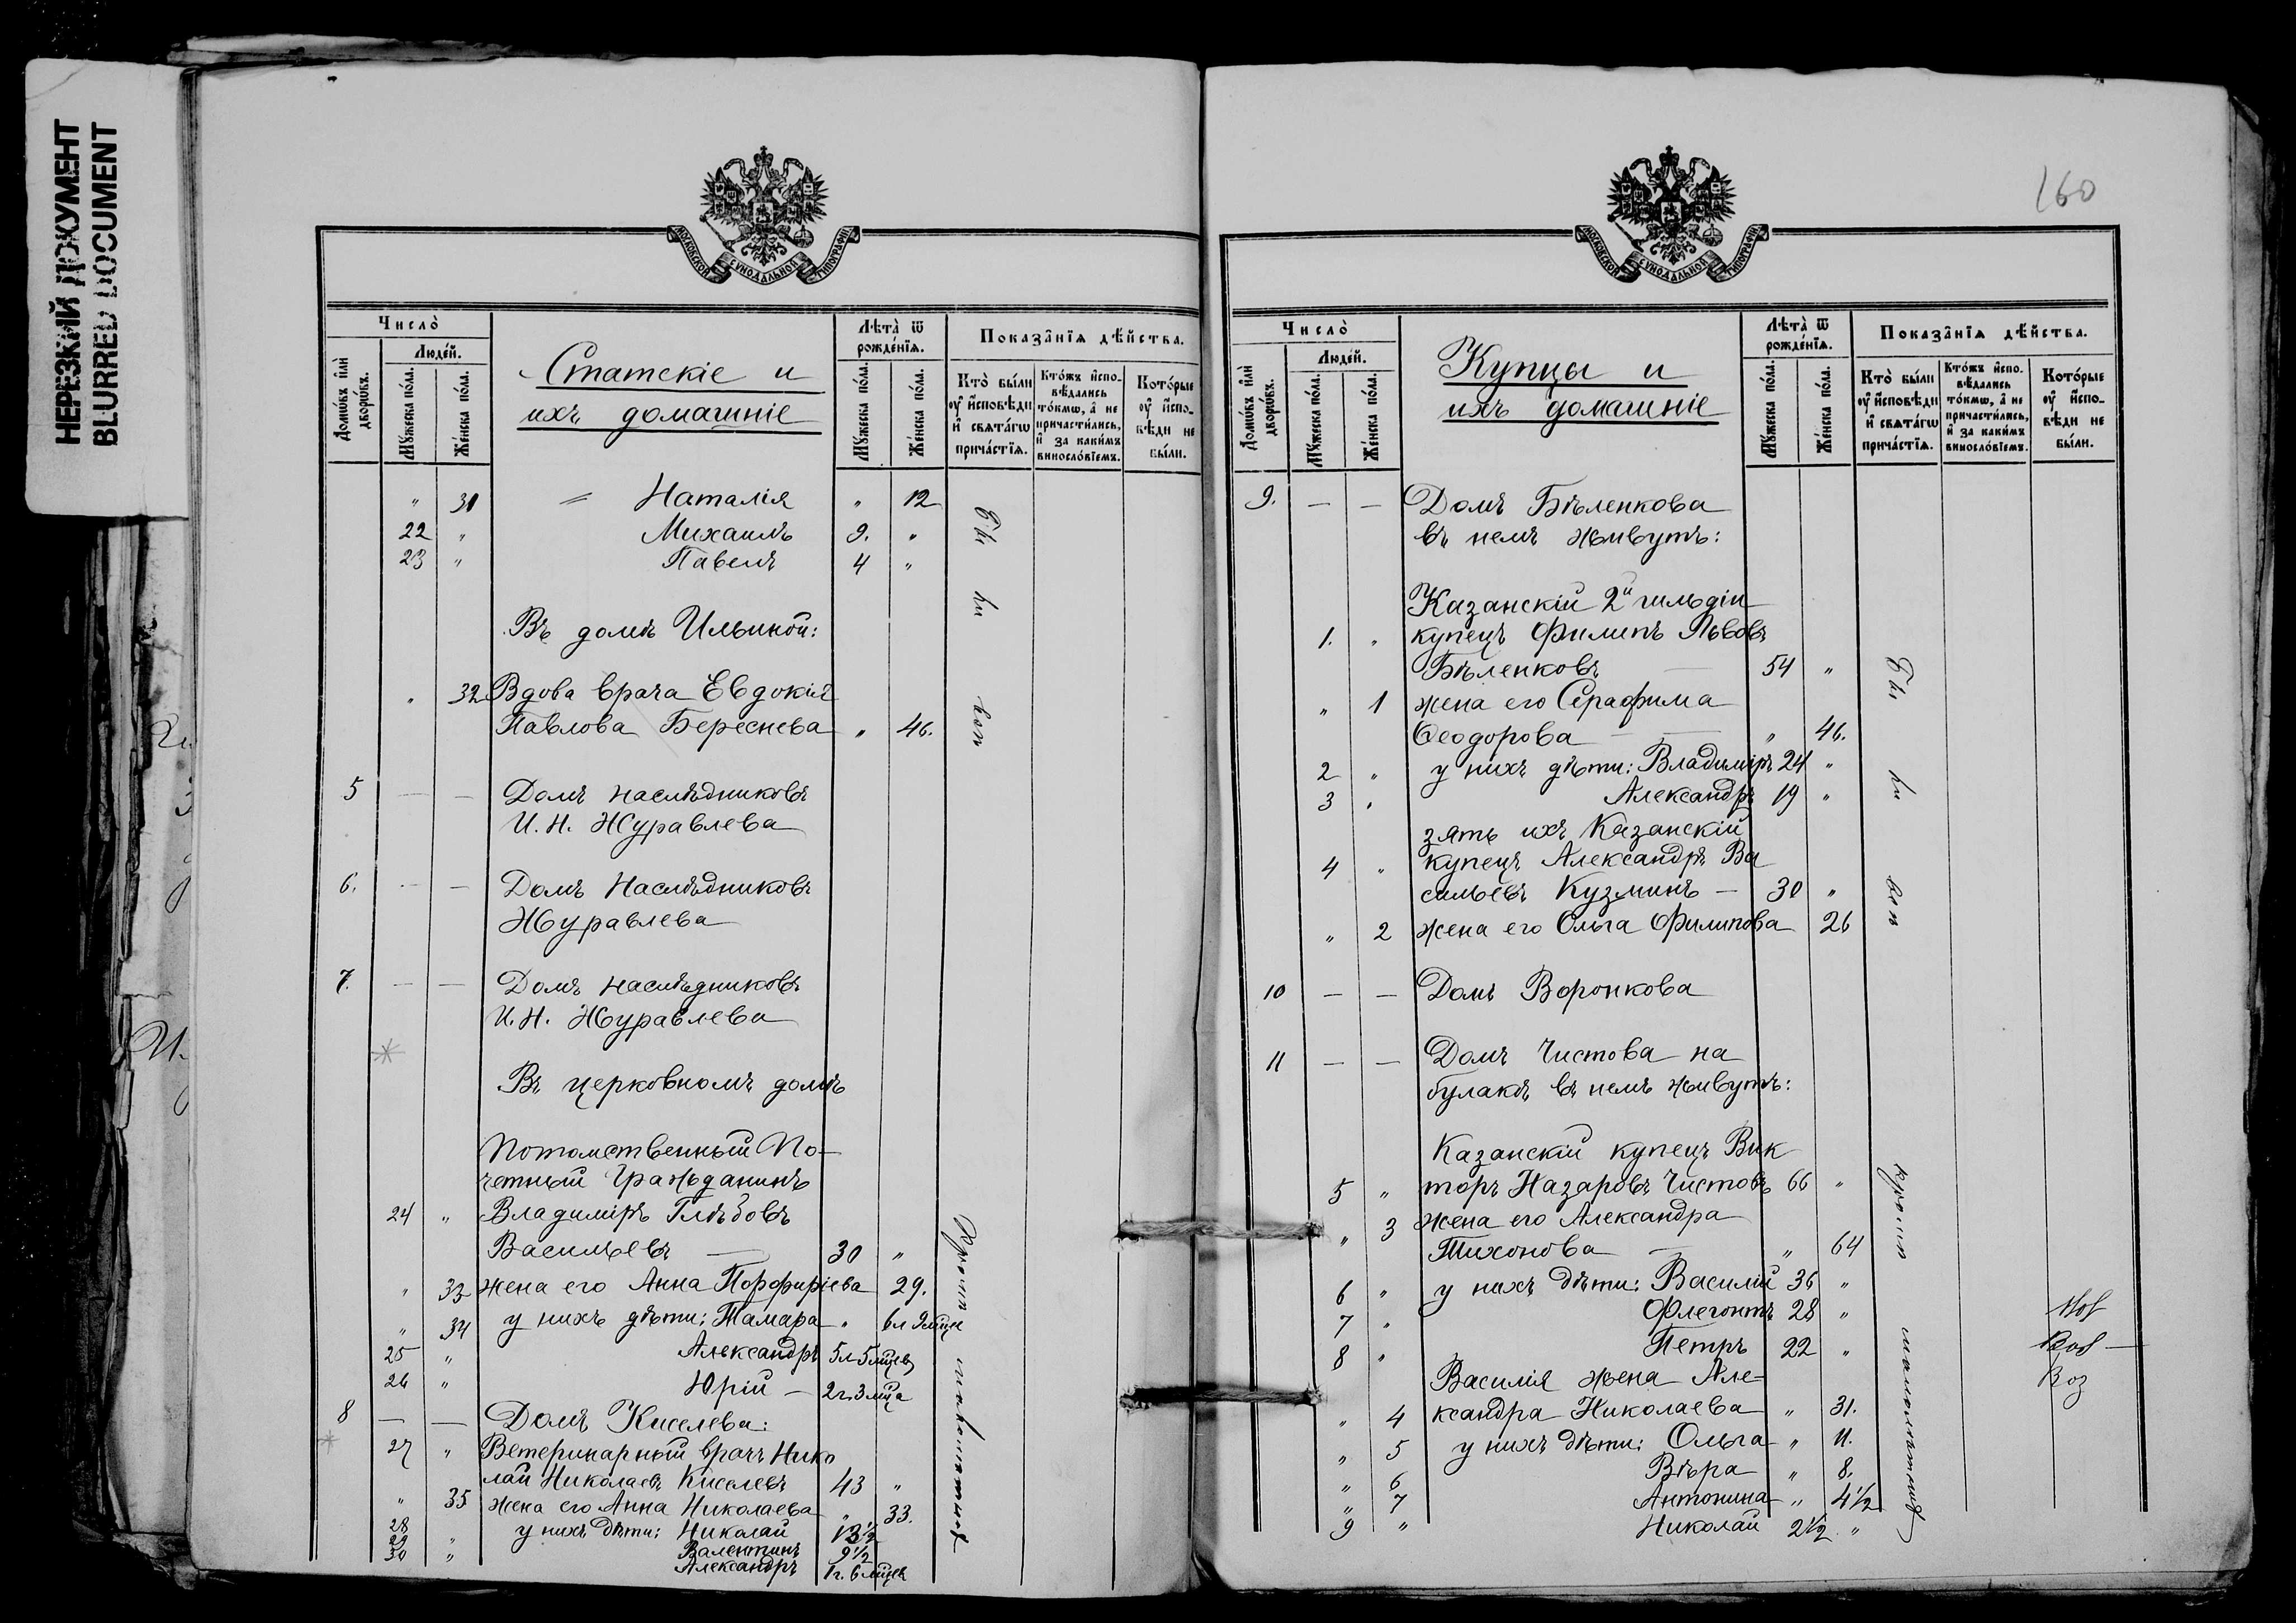 НЕРЕЗКИЙ ДОКУМЕНТ
BLURRED DOCUMENT
МОСКОВСКОЙ СѴНОДАЛЬНОЙ ТИПОГРАФІИ
Число̀
Людей.
Домѡвъ и҆лѝ дворѡвъ.
Мꙋ́жеска по́ла.
Же́нска по́ла.
Статскіе и
ихъ домашніе
Лѣта̀ ѿ рожде́нїѧ.
Мꙋ́жеска по́ла.
Же́нска по́ла.
Показа̑нїѧ дѣ́йства.
Кто̀ бы́ли ᲂу҆ и҆сповѣ́ди и҆ свѧта́гѡ прича́стїѧ.
Кто́жъ и҆спо-вѣ́дались то́кмѡ, а҆ не причасти́лись, и҆ за каки́мъ винословїемъ.
Кото́рые ᲂу҆ и҆спо-вѣ́ди не бы́ли.
„ 31 = Наталія „ 12
22 „ Михаилъ 9. „
23 „ Павелъ 4 „
Въ домѣ Ильиной:
„ 32 Вдова врача Евдокія
Павлова Береснева „ 46.
5 — — Домъ наслѣдниковъ
И. Н. Журавлева
6. — — Домъ Наслѣдниковъ
Журавлева
7. — — Домъ наслѣдниковъ
И. Н. Журавлева
Въ церковномъ домѣ
Потомственный По-
четный Гражданинъ
24 „ Владиміръ Глѣбовъ
Васильевъ — 30 „
„ 33 жена его Анна Порфиріева 29.
„ 34 у нихъ дѣти: Тамара „ 6 л 9 мѣце
25 „ Александръ 5 л 5 мцев
26 „ Юрій — 2 г. 3 мца
8 — — Домъ Киселева:
27 „ Ветеринарный врачъ Нико
лай Николаевъ Киселевъ 43 „
„ 35 жена его Анна Николаева „ 33.
28 „ у нихъ дѣти: Николай 13½
29 „ Валентинъ 9½
30 „ Александръ 1 г. 6 мцев
бы
ли
вси
кромѣ малолѣтнихъ
160
МОСКОВСКОЙ СѴНОДАЛЬНОЙ ТИПОГРАФІИ
Число̀
Людей.
Домѡвъ и҆лѝ дворѡвъ.
Мꙋ́жеска по́ла.
Же́нска по́ла.
Купцы и
ихъ домашніе
Лѣта̀ ѿ рожде́нїѧ.
Мꙋ́жеска по́ла.
Же́нска по́ла.
Показа̑нїѧ дѣ́йства.
Кто̀ бы́ли ᲂу҆ и҆сповѣ́ди и҆ свѧта́гѡ прича́стїѧ.
Кто́жъ и҆спо-вѣ́дались то́кмѡ, а҆ не причасти́лись, и҆ за каки́мъ винословїемъ.
Кото́рые ᲂу҆ и҆спо-вѣ́ди не бы́ли.
9. — — Домъ Бѣленкова
въ немъ живутъ:
Казанскій 2й гильдіи
1. „ купецъ Филипъ Львовъ
Бѣленковъ — 54 „
„ 1 жена его Серафима
Ѳеодорова — „ 46.
2 „ у нихъ дѣти: Владиміръ 24 „
3 „ Александръ 19 „
зять ихъ Казанскій
4 „ купецъ Александръ Ва
сильевъ Кузминъ — 30 „
„ 2 жена его Ольга Филипова 26
10 — — Домъ Воронкова
11 — — Домъ Чистова на
булакѣ въ немъ живутъ:
Казанскій купецъ Вик
5 „ торъ Назаровъ Чистовъ 66 „
„ 3 жена его Александра
Тихонова — „ 64
6 „ у нихъ дѣти: Василій 36 „
7 „ Флегонтъ 28 „
8 „ Петръ 22 „
Василія жена Але-
„ 4 ксандра Николаева „ 31.
„ 5 у нихъ дѣти: Ольга „ 11.
„ 6 Вѣра „ 8.
„ 7 Антонина „ 4½
9 „ Николай 2½ „
бы
ли
вси
кромѣ малолѣтнихъ